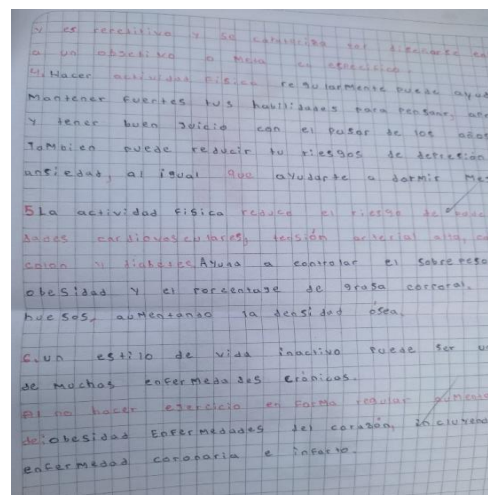 y es repetitivo y se caracteriza por
o un objetivo o meta en especifico.
4. Hacer actividad física regularmente puede ayud
mantener fuertes tus habilidades para pensar, apr
y tener buen juicio con el pasar de los años
También puede reducir tu riesgos de depresión
ansiedad, al igual que ayudarte a dormir Me
5 La actividad física reduce el riesgo de
dades cardiovasculares, tensión arterial alta, c
colon y diabetes. Ayuda a controlar el sobrepeso
obesidad y el porcentaje de grasa corporal.
huesos, aumentando la densidad ósea.
6. un estilo de vida inactivo puede ser u
de muchas enfermedades crónicas.
Al no hacer ejercicio en forma regular aumenta
de: obesidad Enfermedades del corazón, incluyend
enfermedad coronaria e infarto.